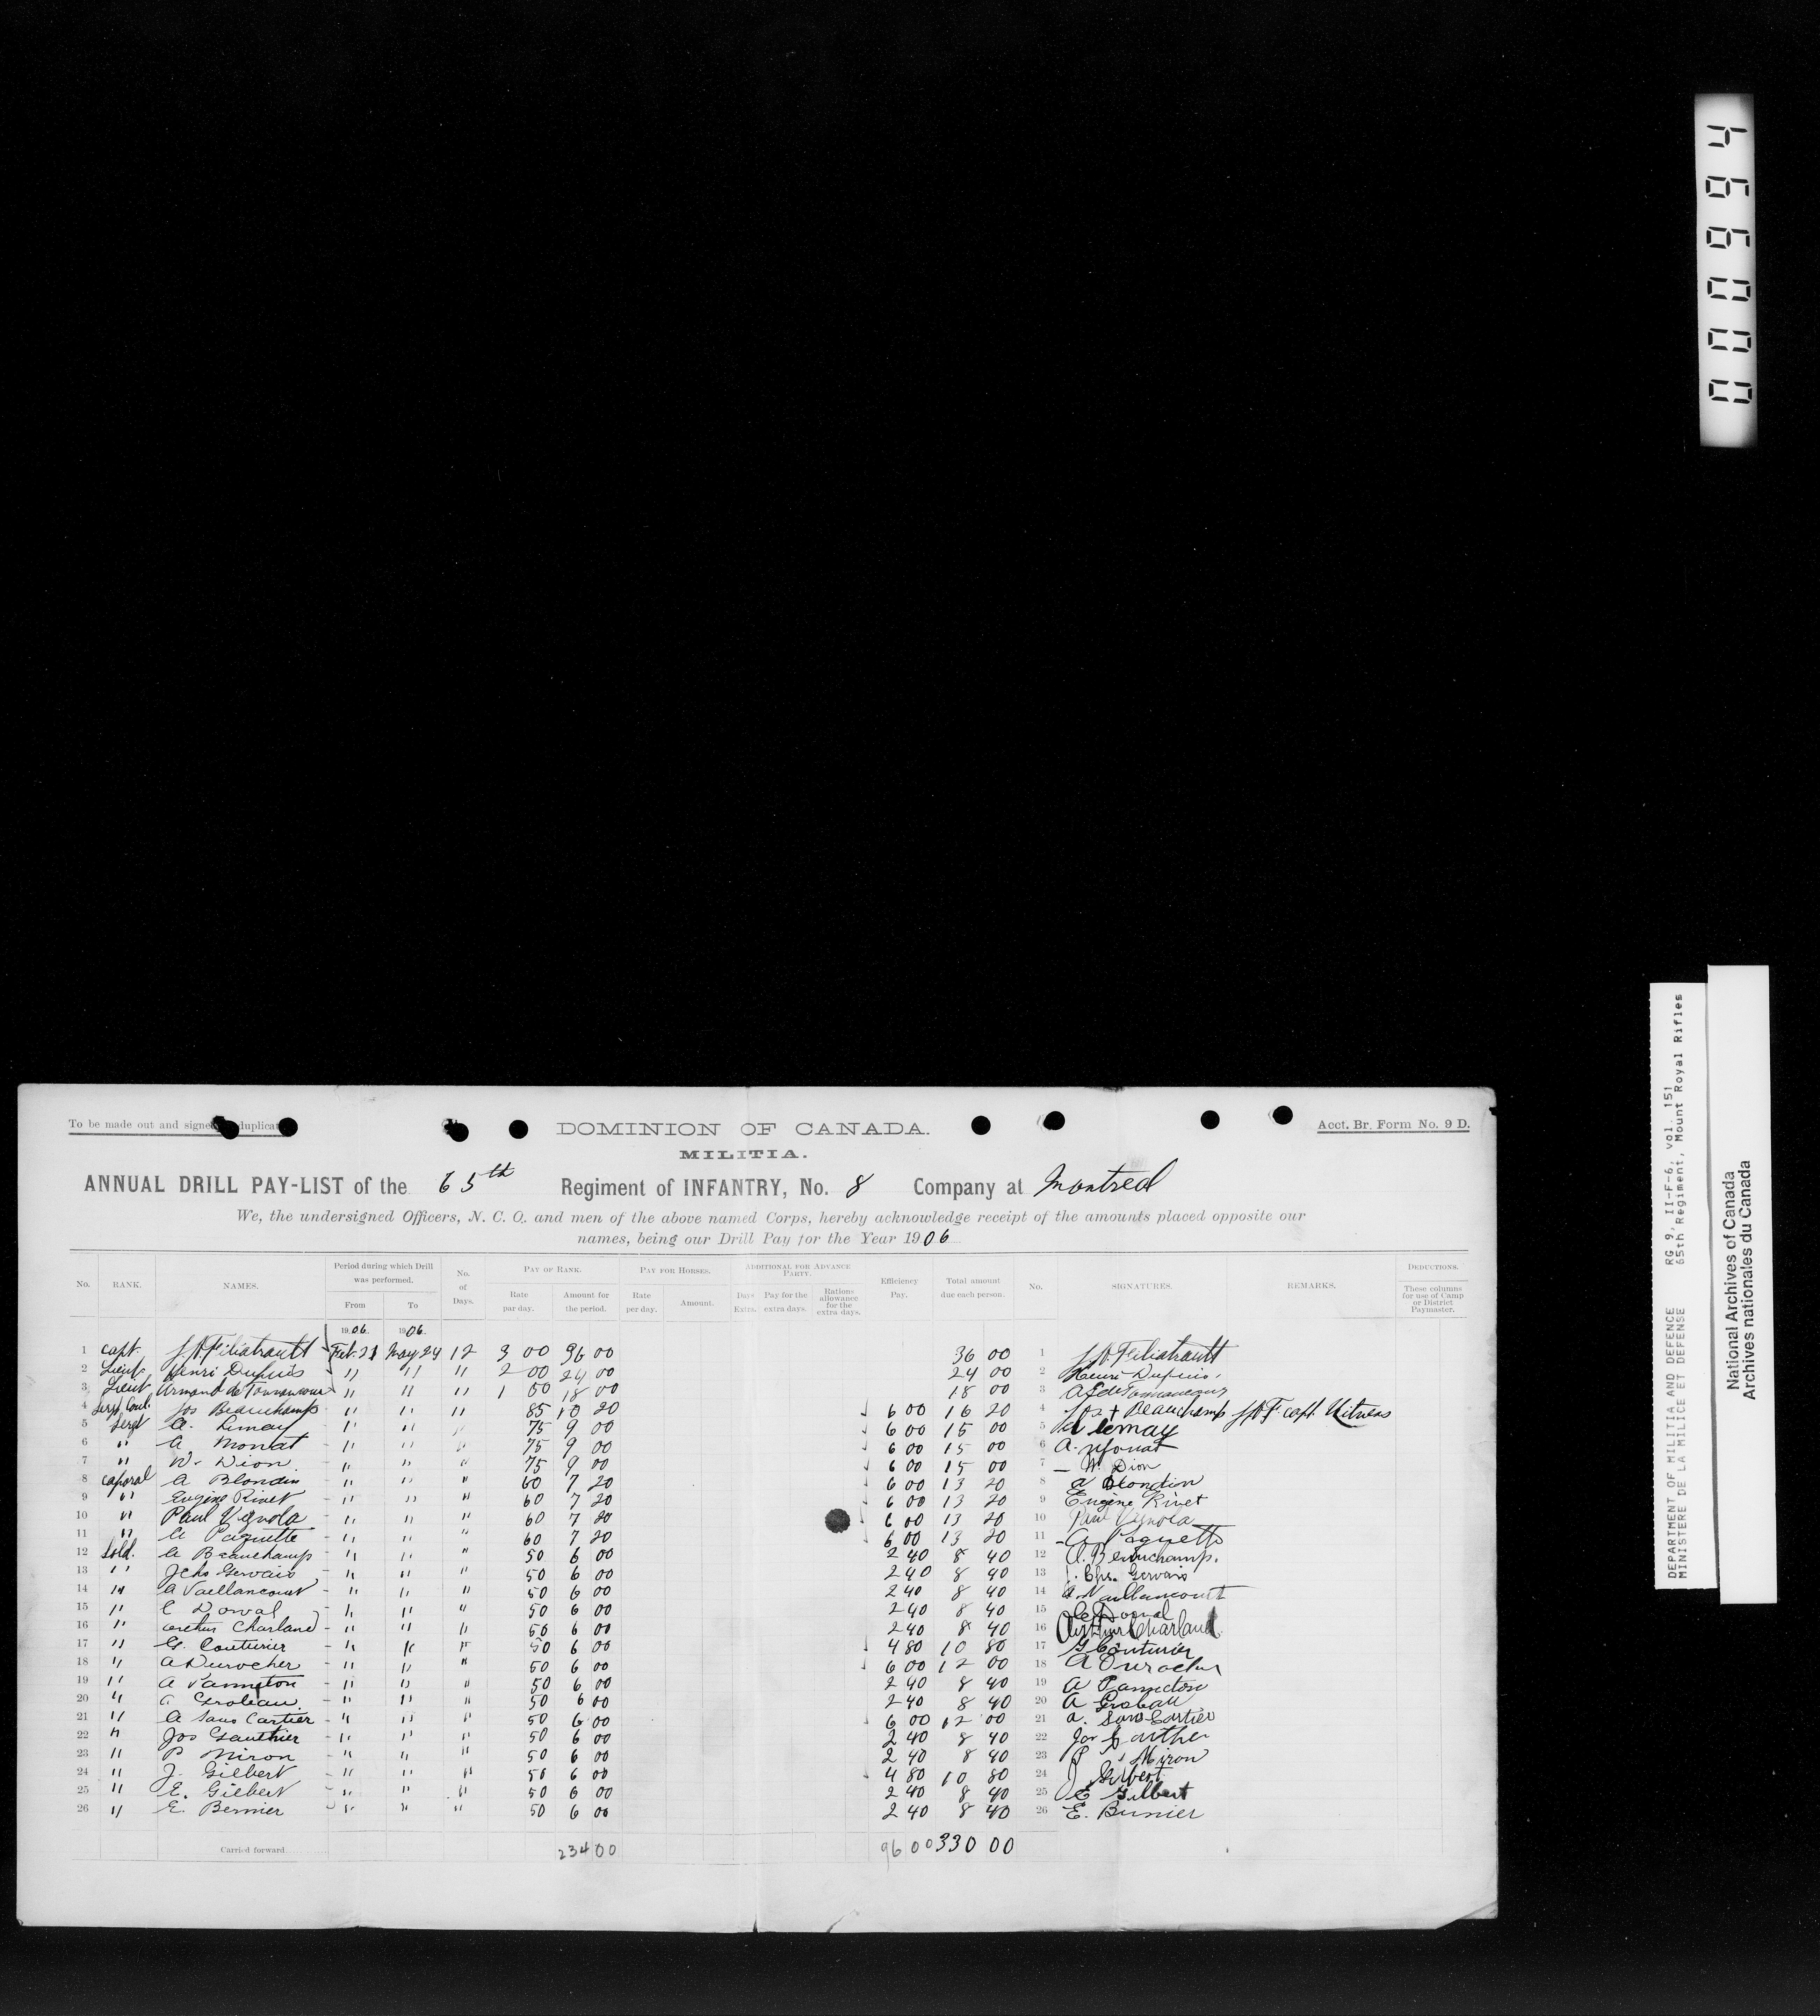 466000
To be made out and signed duplicate
DOMINION OF CANADA.
Acct. Br. Form No. 9 D.
MILITIA.
ANNUAL DRILL PAY-LIST of the 65th Regiment of INFANTRY, No. 8 Company at Montreal
We, the undersigned Officers, N. C. O. and men of the above named Corps, hereby acknowledge receipt of the amounts placed opposite our
names, being our Drill Pay for the Year 1906
No. RANK. NAMES. Period during which Drill was performed. From To No. of Days. PAY OF RANK. Rate par day. Amount for the period. PAY FOR HORSES. Rate per day. Amount. ADDITIONAL FOR ADVANCE PARTY. Days Extra. Pay for the extra days. Rations allowance for the extra days. Efficiency Pay. Total amount due each person. No. SIGNATURES. REMARKS. DEDUCTIONS. These columns for use of Camp or District Paymaster.
1906 1906
1 Capt. Filiatrault Feb. 21 May 24 12 3 00 36 00 36 00 1 Filiatrault
2 Lieut Henri Dupuis " " " 2 00 24 00 24 00 2 Henri Dupuis
3 Lieut Armand de Tonnancour " " " 1 50 18 00 18 00 3
4 Jos Beauchamp " " " 85 10 20 6 00 16 20 4 Jos + Beauchamp capt. Witness
5 Sergt A. Lemay " " " 75 9 00 6 00 15 00 5 A Lemay
6 " A. Monat " " " 75 9 00 6 00 15 00 6 A. Monat
7 " W. Dion " " " 75 9 00 6 00 15 00 7 W. Dion
8 Caporal A Blondin " " " 60 7 20 6 00 13 20 8 A Blondin
9 " Eugène Rivet " " " 60 7 20 6 00 13 20 9 Eugène Rivet
10 " Paul Vignola " " " 60 7 20 6 00 13 20 10 Paul Vignola
11 " A Paquette " " " 60 7 20 6 00 13 20 11 A Paquette
12 Sold. A Beauchamp " " " 50 6 00 2 40 8 40 12 A. Beauchamp.
13 " Gervais " " " 50 6 00 2 40 8 40 13 Chs. Gervais
14 " A Vaillancourt " " " 50 6 00 2 40 8 40 14 A Vaillancourt
15 " C Dorval " " " 50 6 00 2 40 8 40 15 C Dorval
16 " Arthur Charland " " " 50 6 00 2 40 8 40 16 Arthur Charland
17 " G. Couturier " " " 50 6 00 4 80 10 80 17 G Couturier
18 " A Durocher " " " 50 6 00 6 00 12 00 18 A Durocher
19 " A Panneton " " " 50 6 00 2 40 8 40 19 A Panneton
20 " A Groleau " " " 50 6 00 2 40 8 40 20 A
21 " A Sans Cartier " " " 50 6 00 6 00 12 00 21 A. Sans Cartier
22 " Jos Gauthier " " " 50 6 00 2 40 8 40 22 Jos
23 " P Miron " " " 50 6 00 2 40 8 40 23 P Miron
24 " J. Gilbert " " " 50 6 00 4 80 10 80 24 J Gilbert
25 " E. Gilbert " " " 50 6 00 2 40 8 40 25 E Gilbert
26 " E. Bernier " " " 50 6 00 2 40 8 40 26 E. Bernier
Carried forward 234 00 96 00 330 00
DEPARTMENT OF MILITIA AND DEFENCE RG 9, II-F-6, vol. 151
MINISTERE DE LA MILICE ET DEFENSE 65th Regiment, Mount Royal Rifles
National Archives of Canada
Archives nationales du Canada